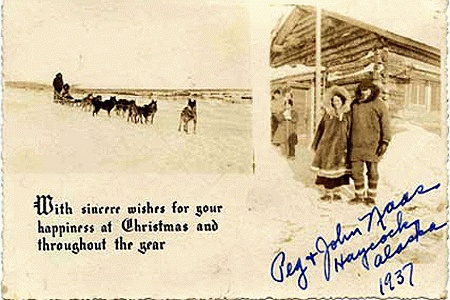 With sincere wishes for your
happiness at Christmas and
throughout the year
Peg & John Naas
Haycock
Alaska
1937